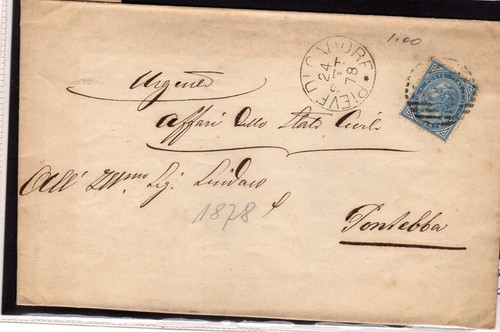 1.00
PIEVE DI CADORE
24
SET
78
Urgente
Affari dello Stato Civile
All' Ill.mo Sig. Sindaco
1878
Pontebba